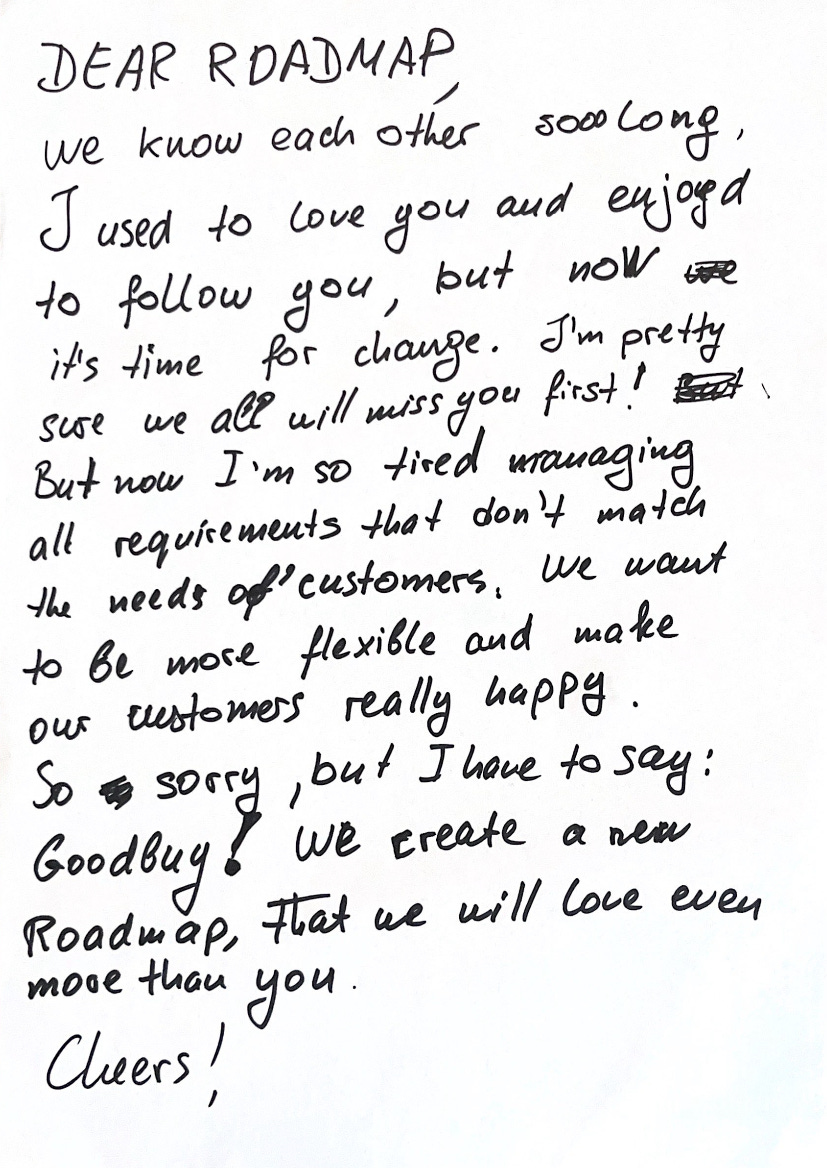 DEAR ROADMAP,
we know each other sooo long,
I used to love you and enjoyd
to follow you, but now
it's time for change. I'm pretty
sure we all will miss you first!
But now I'm so tired managing
all requirements that don't match
the needs of customers. We want
to be more flexible and make
our customers really happy.
So sorry, but I have to say:
Goodbuy! We create a new
Roadmap, that we will love even
more than you.
Cheers!